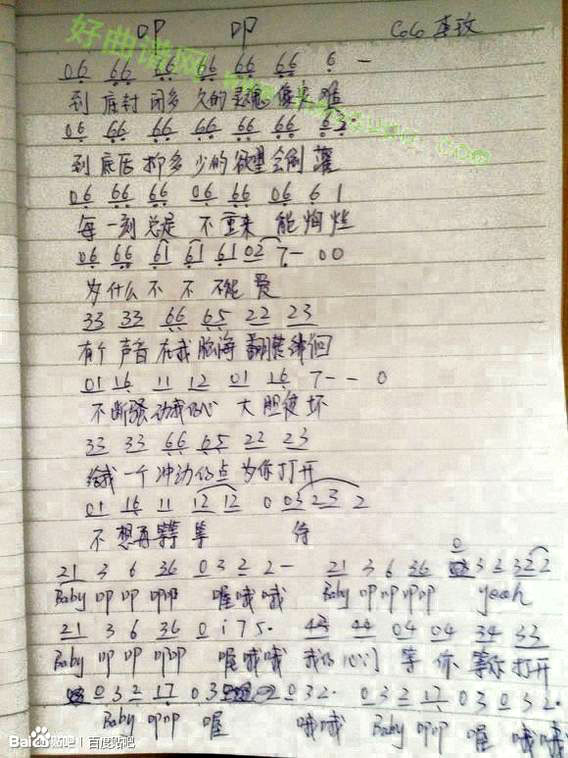 叩 叩 CoCo 李玟
好曲谱网
06 66 66 66 66 66 6 -
到底封闭多久的灵魂像来难
06 66 66 66 66 66 62·
到底压抑多少的欲望会倒塌
06 66 66 06 66 06 6 1
每一刻总是不重来能绚烂
06 66 61 61 61 02 7- 00
为什么不不不能爱
33 33 66 65 22 23
有个声音在我脑海翻转徘徊
01 16 11 12 01 16 7 - - 0
不断骚动我的心 大胆使坏
33 33 66 65 22 23
给我一个冲动的点为你打开
01 16 11 12 12 0 03 2 3 2
不想再等等 待
21 3 6 36 0 3 2 2- 21 3 6 36 0 3 2 3 2 2
Baby 叩叩叩叩 喔哦哦 Baby 叩叩叩叩 yeah
21 3 6 36 0 i 7 5· 43 44 04 04 34 33
Baby 叩叩叩叩 喔哦哦 我的心门等你等你打开
0 3 2 17 0 3 2 0 3 2· 0 3 2 17 0 3 0 3 2·
Baby 叩叩 喔 哦哦 Baby 叩叩 喔 哦哦
Baidu贴吧 | 百度贴吧